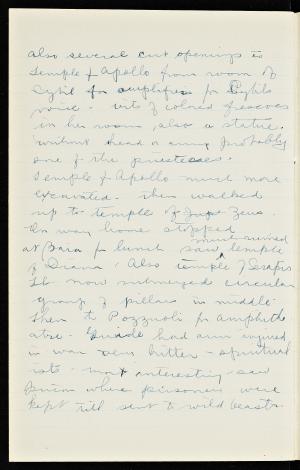 also several cut openings to
temple of Apollo from room of
Sybil for amplifier for Sybils
voice - bits of colored frescoes
in her room, also a statue
without head or arms, probably
one of the priestesses.
Temple of Apollo much more
excavated. Then walked
up to temple of Jup Zeus.
On way home stopped
at Baia for lunch saw much ruined temple
of Diana. Also temple of Serapis
It now submerged circular
group of pillars in middle.
Then to Pozzuoli for amphithe
atre. Guide had arm injured
in war very bitter - spiritual
ist - most interesting - saw
prison where prisoners were
kept till sent to wild beasts.